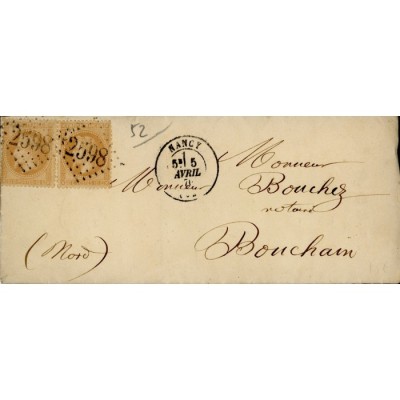 2598 2598
52
NANCY
5E 5
AVRIL
Monsieur
Monsieur Bouchez
notaire
Bouchain
(Nord)